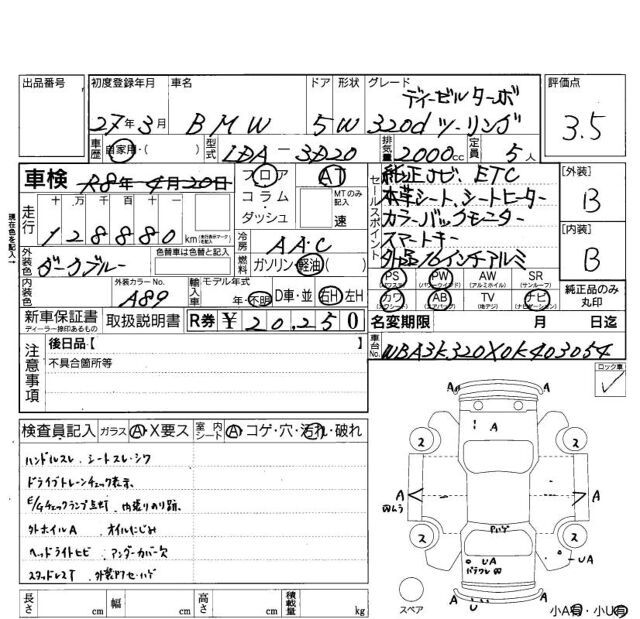 出品番号 初度登録年月 車名 ドア 形状 グレード 評価点
ディーゼルターボ
27年3月 BMW 5W 320d ツーリング 3.5
車歴 自家用・( ) 型式 LDA-3D20 排気量 2000cc 定員 5人
車検 R8年4月20日 フロア AT 純正ナビ、ETC 【外装】
走行 十 万 千 百 十 コラム MTのみ記入 本革シート、シートヒーター B
128880 km ダッシュ 速 カラーバックモニター
セールスポイント スマートキー 【内装】
現在色を記入 冷房 AAC 外品16インチアルミ B
外装色 ダークブルー 色替車は色替と記入 燃料 ガソリン・軽油( ) PS PW AW SR
(パワーウインド) (アルミホイル) (サンルーフ)
内装色 外装カラーNo. A89 輸入車 モデル年式 年・不明 D車・並 右H 左H カワ AB TV ナビ 純正品のみ丸印
(エアバック) (地デジ) (ナビゲーション)
新車保証書 取扱説明書 R券 ¥20,250 名変期限 月 日迄
ディーラー捺印あるもの
注意事項 後日品【 】 車台No. WBA3K320X0K403054
不具合箇所等 ロック車
検査員記入 ガラス A・X要ス 室内シート A・コゲ・穴・汚れ・破れ
ハンドルスレ シートスレ・シワ
ドライブトレーンチェック表示、
E/Gチェックランプ点灯、内張りのり跡、
外ホイルA オイルにじみ
ヘッドライトヒビ アンダーカバー欠
スタッドレスT
A A
A
2 2
A A
2 2
UA UA
A U A
スペア
長さ cm 幅 cm 高さ cm 積載量 kg 小A有 小U有